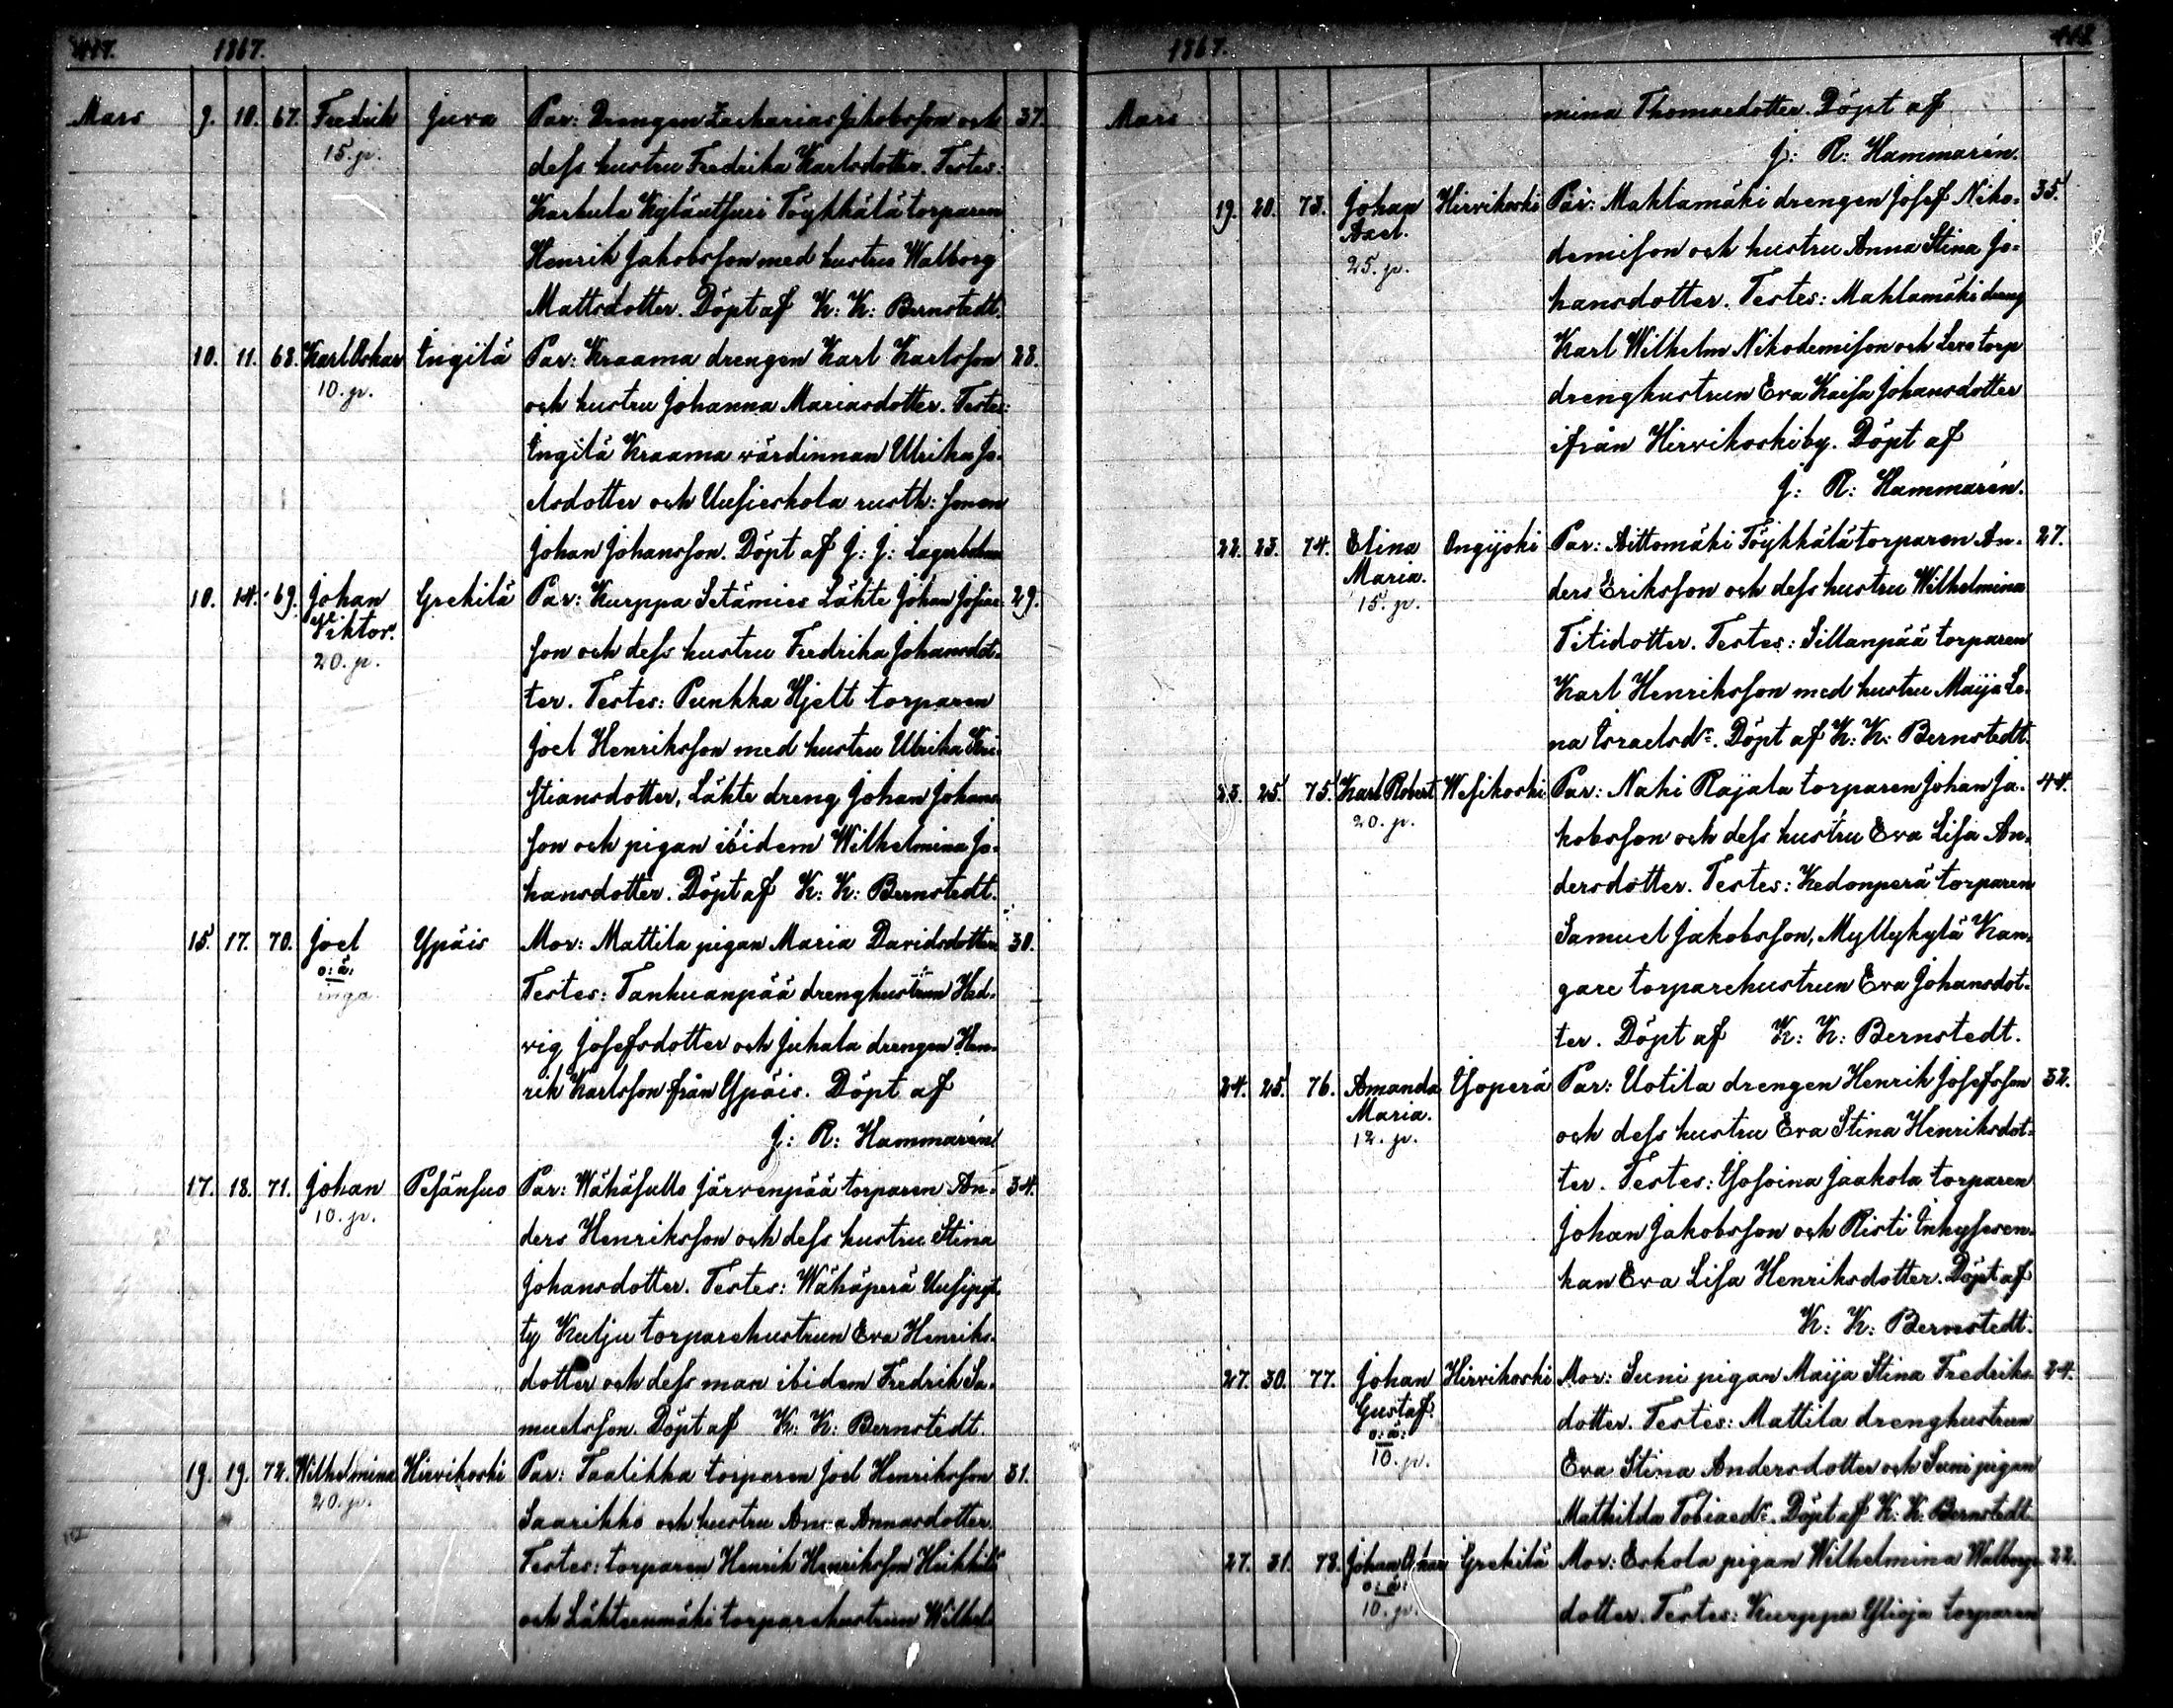 417. 1867.
Mars 9. 10. 67. Fredrik Juva Par: Drengen Zacharias Jakobsson och 37.
15. p. dess hustru Fredrika Karlsdotter. Testes:
Töykkälä torparen
Henrik Jakobsson med hustru Walborg
Mattsdotter. Döpt af K: K: Bernstedt.
10. 11. 68. Karl Oskar Ingilä Par: Kraama drengen Karl Karlsson 28.
10. p. och hustru Johanna Mariasdotter. Testes:
Ingilä Kraama värdinnan Ulrika Jo-
elsdotter och Uusieskola rusth: sonen
Johan Johansson. Döpt af J: J:
10. 14. 69. Johan Grekilä Par: Kurppa Setämies Lähte Johan Josias- 29.
Viktor. son och dess hustru Fredrika Johansdot-
20. p. ter. Testes: Punkka Hjelt torparen
Joel Henriksson med hustru Ulrika Kri-
stiansdotter, Lähte dreng Johan Johans-
son och pigan ibidem Wilhelmina Jo-
hansdotter. Döpt af K: K: Bernstedt.
15. 17. 70. Joel Ypäis Mor: Mattila pigan Maria Davidsdotter. 30.
o: ä: Testes: Tanhuanpää drenghustrun Hed-
inga. vig Josefsdotter och Juhala drengen Hen-
rik Karlsson från Ypäis. Döpt af
J: R: Hammarén.
17. 18. 71. Johan Pesänsuo Par: Järvenpää torparen An- 34.
10. p. ders Henriksson och dess hustru Stina
Johansdotter. Testes: Wähäperä Uusipyt-
ty Kulju torparehustrun Eva Henriks-
dotter och dess man ibidem Fredrik Sa-
muelsson. Döpt af K: K: Bernstedt.
19. 19. 72. Wilhelmina Hirvikoski Par: Taalikka torparen Joel Henriksson 31.
20. p. Saarikko och hustru Anna Annasdotter.
Testes: torparen Henrik Henriksson Heikkilä
och Lähteenmäki torparehustrun Wilhel-
1867. 418.
Mars mina Thomasdotter. Döpt af
J: R: Hammarén.
19. 20. 73. Johan Hirvikoski Par: Mahlamäki drengen Josef Niko- 35.
Axel. demison och hustru Anna Stina Jo-
25. p. hansdotter. Testes: Mahlamäki dreng
Karl Wilhelm Nikodemison och torp
drenghustrun Eva Kaisa Johansdotter
ifrån Hirvikoski by. Döpt af
J: R: Hammarén.
22. 23. 74. Elina Ongijoki Par: Aittomäki Töykkälä torparen An- 27.
Maria. ders Eriksson och dess hustru Wilhelmina
15. p. Titidotter. Testes: Sillanpää torparen
Karl Henriksson med hustru Maija Le-
na Israelsdr. Döpt af K: K: Bernstedt.
23. 25. 75. Karl Robert Wesikoski Par: Naki Rajala torparen Johan Ja- 44.
20. p. kobsson och dess hustru Eva Lisa An-
dersdotter. Testes: Kedonperä torparen
Samuel Jakobsson, Myllykylä Kan-
gare torparehustrun Eva Johansdot-
ter. Döpt af K: K: Bernstedt.
24. 25. 76. Amanda Isoperä Par: Uotila drengen Henrik Josefsson 32.
Maria. och dess hustru Eva Stina Henriksdot-
12. p. ter. Testes: Isosoina Jaakola torparen
Johan Jakobsson och Risti Inhyseen-
kan Eva Lisa Henriksdotter. Döpt af
K: K: Bernstedt.
27. 30. 77. Johan Hirvikoski Mor: Suni pigan Maija Stina Fredriks- 24.
Gustaf. dotter. Testes: Mattila drenghustrun
o: ä: Eva Stina Andersdotter och Suni pigan
10. p. Mathilda Tobiasdr. Döpt af K: K: Bernstedt.
27. 31. 78. Johan Oskar Grekilä Mor: Eskola pigan Wilhelmina Walborgs- 22.
o: ä: dotter. Testes: Kurppa Ylioja torparen
10. p.